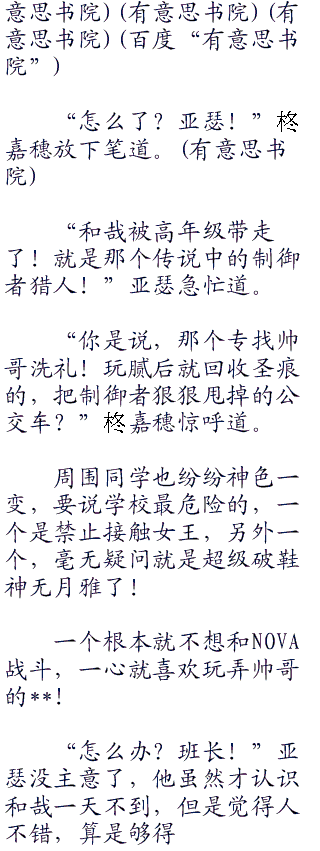 意思书院) (有意思书院) (有
意思书院) (百度“有意思书
院”)
“怎么了？亚瑟！”柊
嘉穗放下笔道。(有意思书
院)
“和哉被高年级带走
了！就是那个传说中的制御
者猎人！”亚瑟急忙道。
“你是说，那个专找帅
哥洗礼！玩腻后就回收圣痕
的，把制御者狠狠甩掉的公
交车？”柊嘉穗惊呼道。
周围同学也纷纷神色一
变，要说学校最危险的，一
个是禁止接触女王，另外一
个，毫无疑问就是超级破鞋
神无月雅了！
一个根本就不想和NOVA
战斗，一心就喜欢玩弄帅哥
的**！
“怎么办？班长！”亚
瑟没主意了，他虽然才认识
和哉一天不到，但是觉得人
不错，算是够得